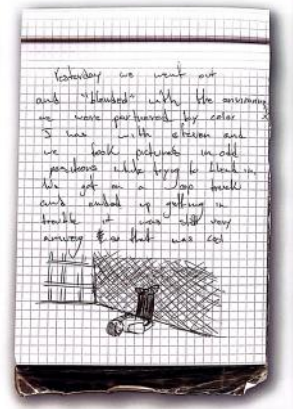 Yesterday we went out
and "blended" with the environment
we were partnered by color
I was with steven and
we took pictures in odd
positions while trying to blend in,
We got on a top truck
and ended up getting in
trouble it was still very
amusing so that was cool